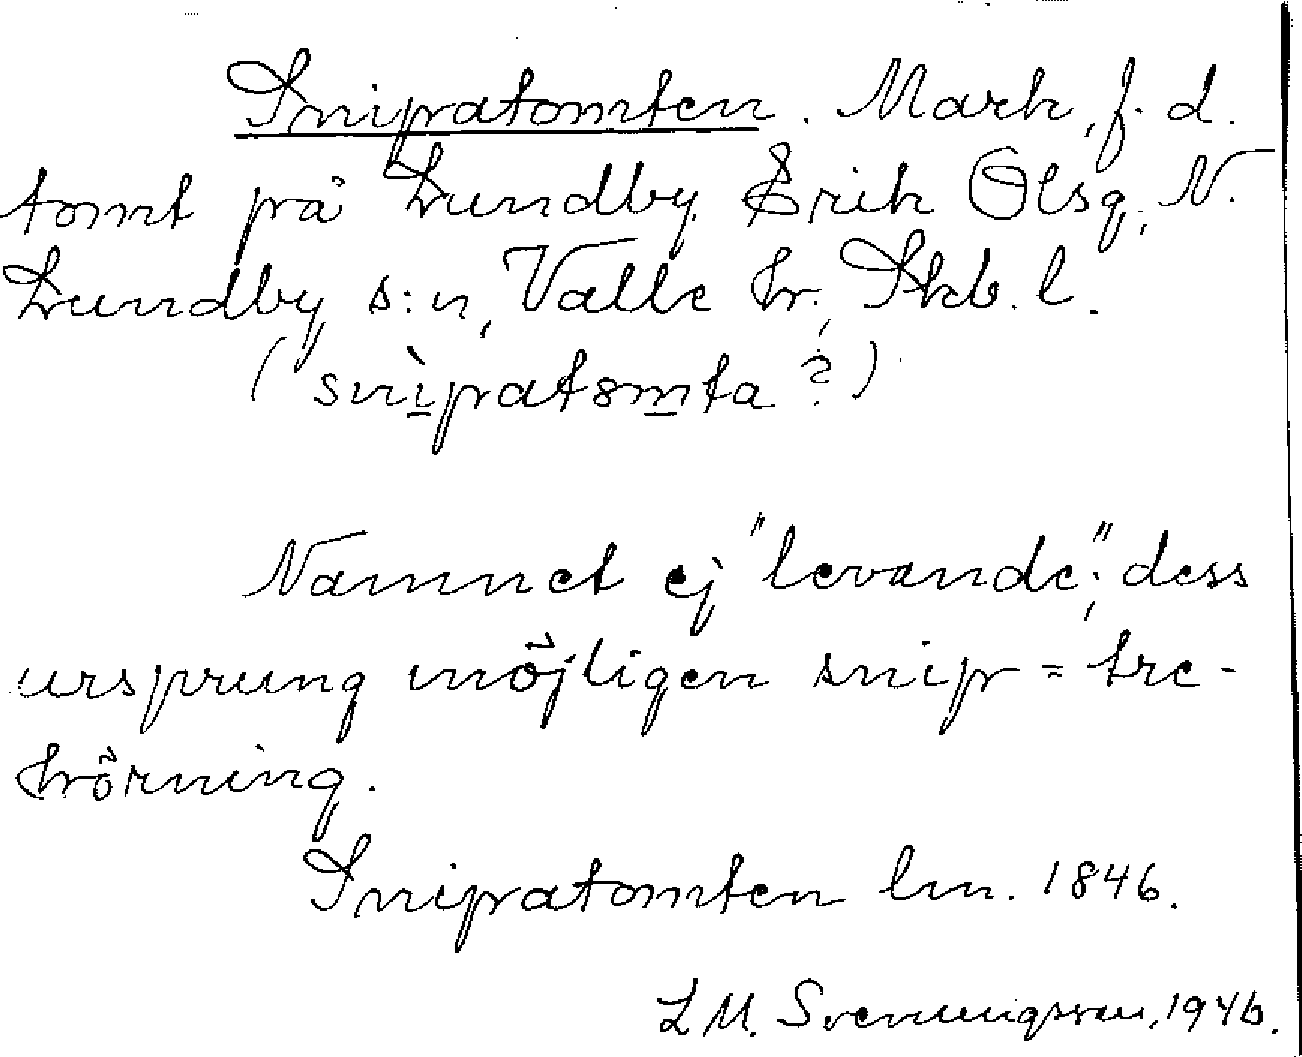 Snipatomten. Mark, f. d.
tomt på Lundby Erik Olsg, N.
Lundby s:n, Valle hr, Skb. l.
(snìpat8mta ?)
Namnet ej "levande", dess
ursprung möjligen snip = tre-
hörning.
Snipatomten lm. 1846.
L M. Svenungsson, 1946.